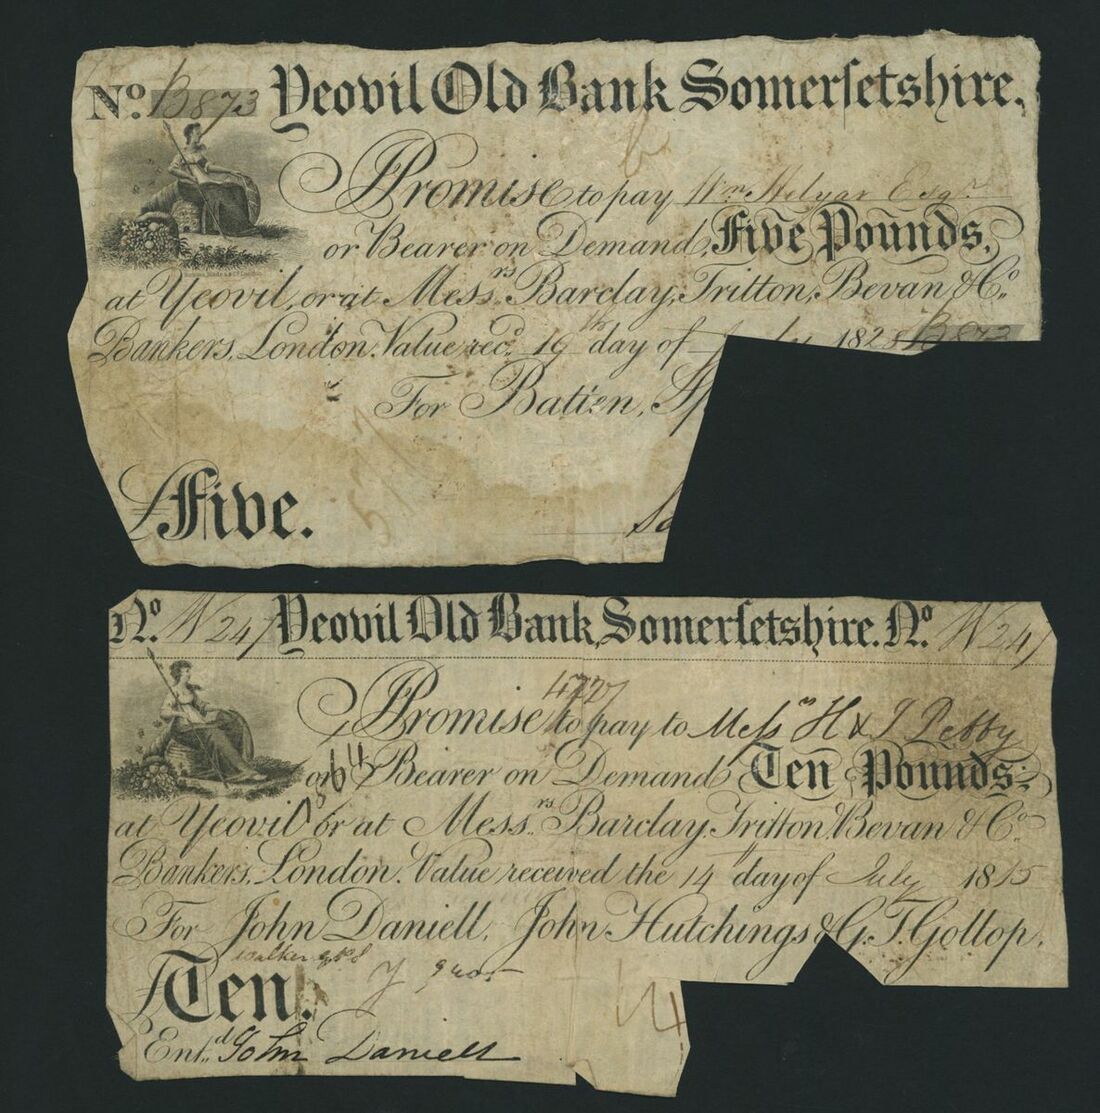 No. B873 Yeovil Old Bank Somersetshire.
Promise to pay Wm Helyar Esqr
or Bearer on Demand, Five Pounds,
at Yeovil, or at Messrs. Barclay, Tritton, Bevan & Co.
Bankers, London. Value recd. 19th day of July 1828 B873
For Batten,
£ Five.
No. W247 Yeovil Old Bank, Somersetshire. No. W247
4727
Promise to pay to Messrs H &
or Bearer on Demand Ten Pounds:
at Yeovil or at Messrs. Barclay, Tritton, Bevan & Co.
Bankers, London. Value received the 14 day of July 1815
For John Daniell, John Hutchings & G. T. Gollop.
£ Ten.
14
Entd. John Daniell